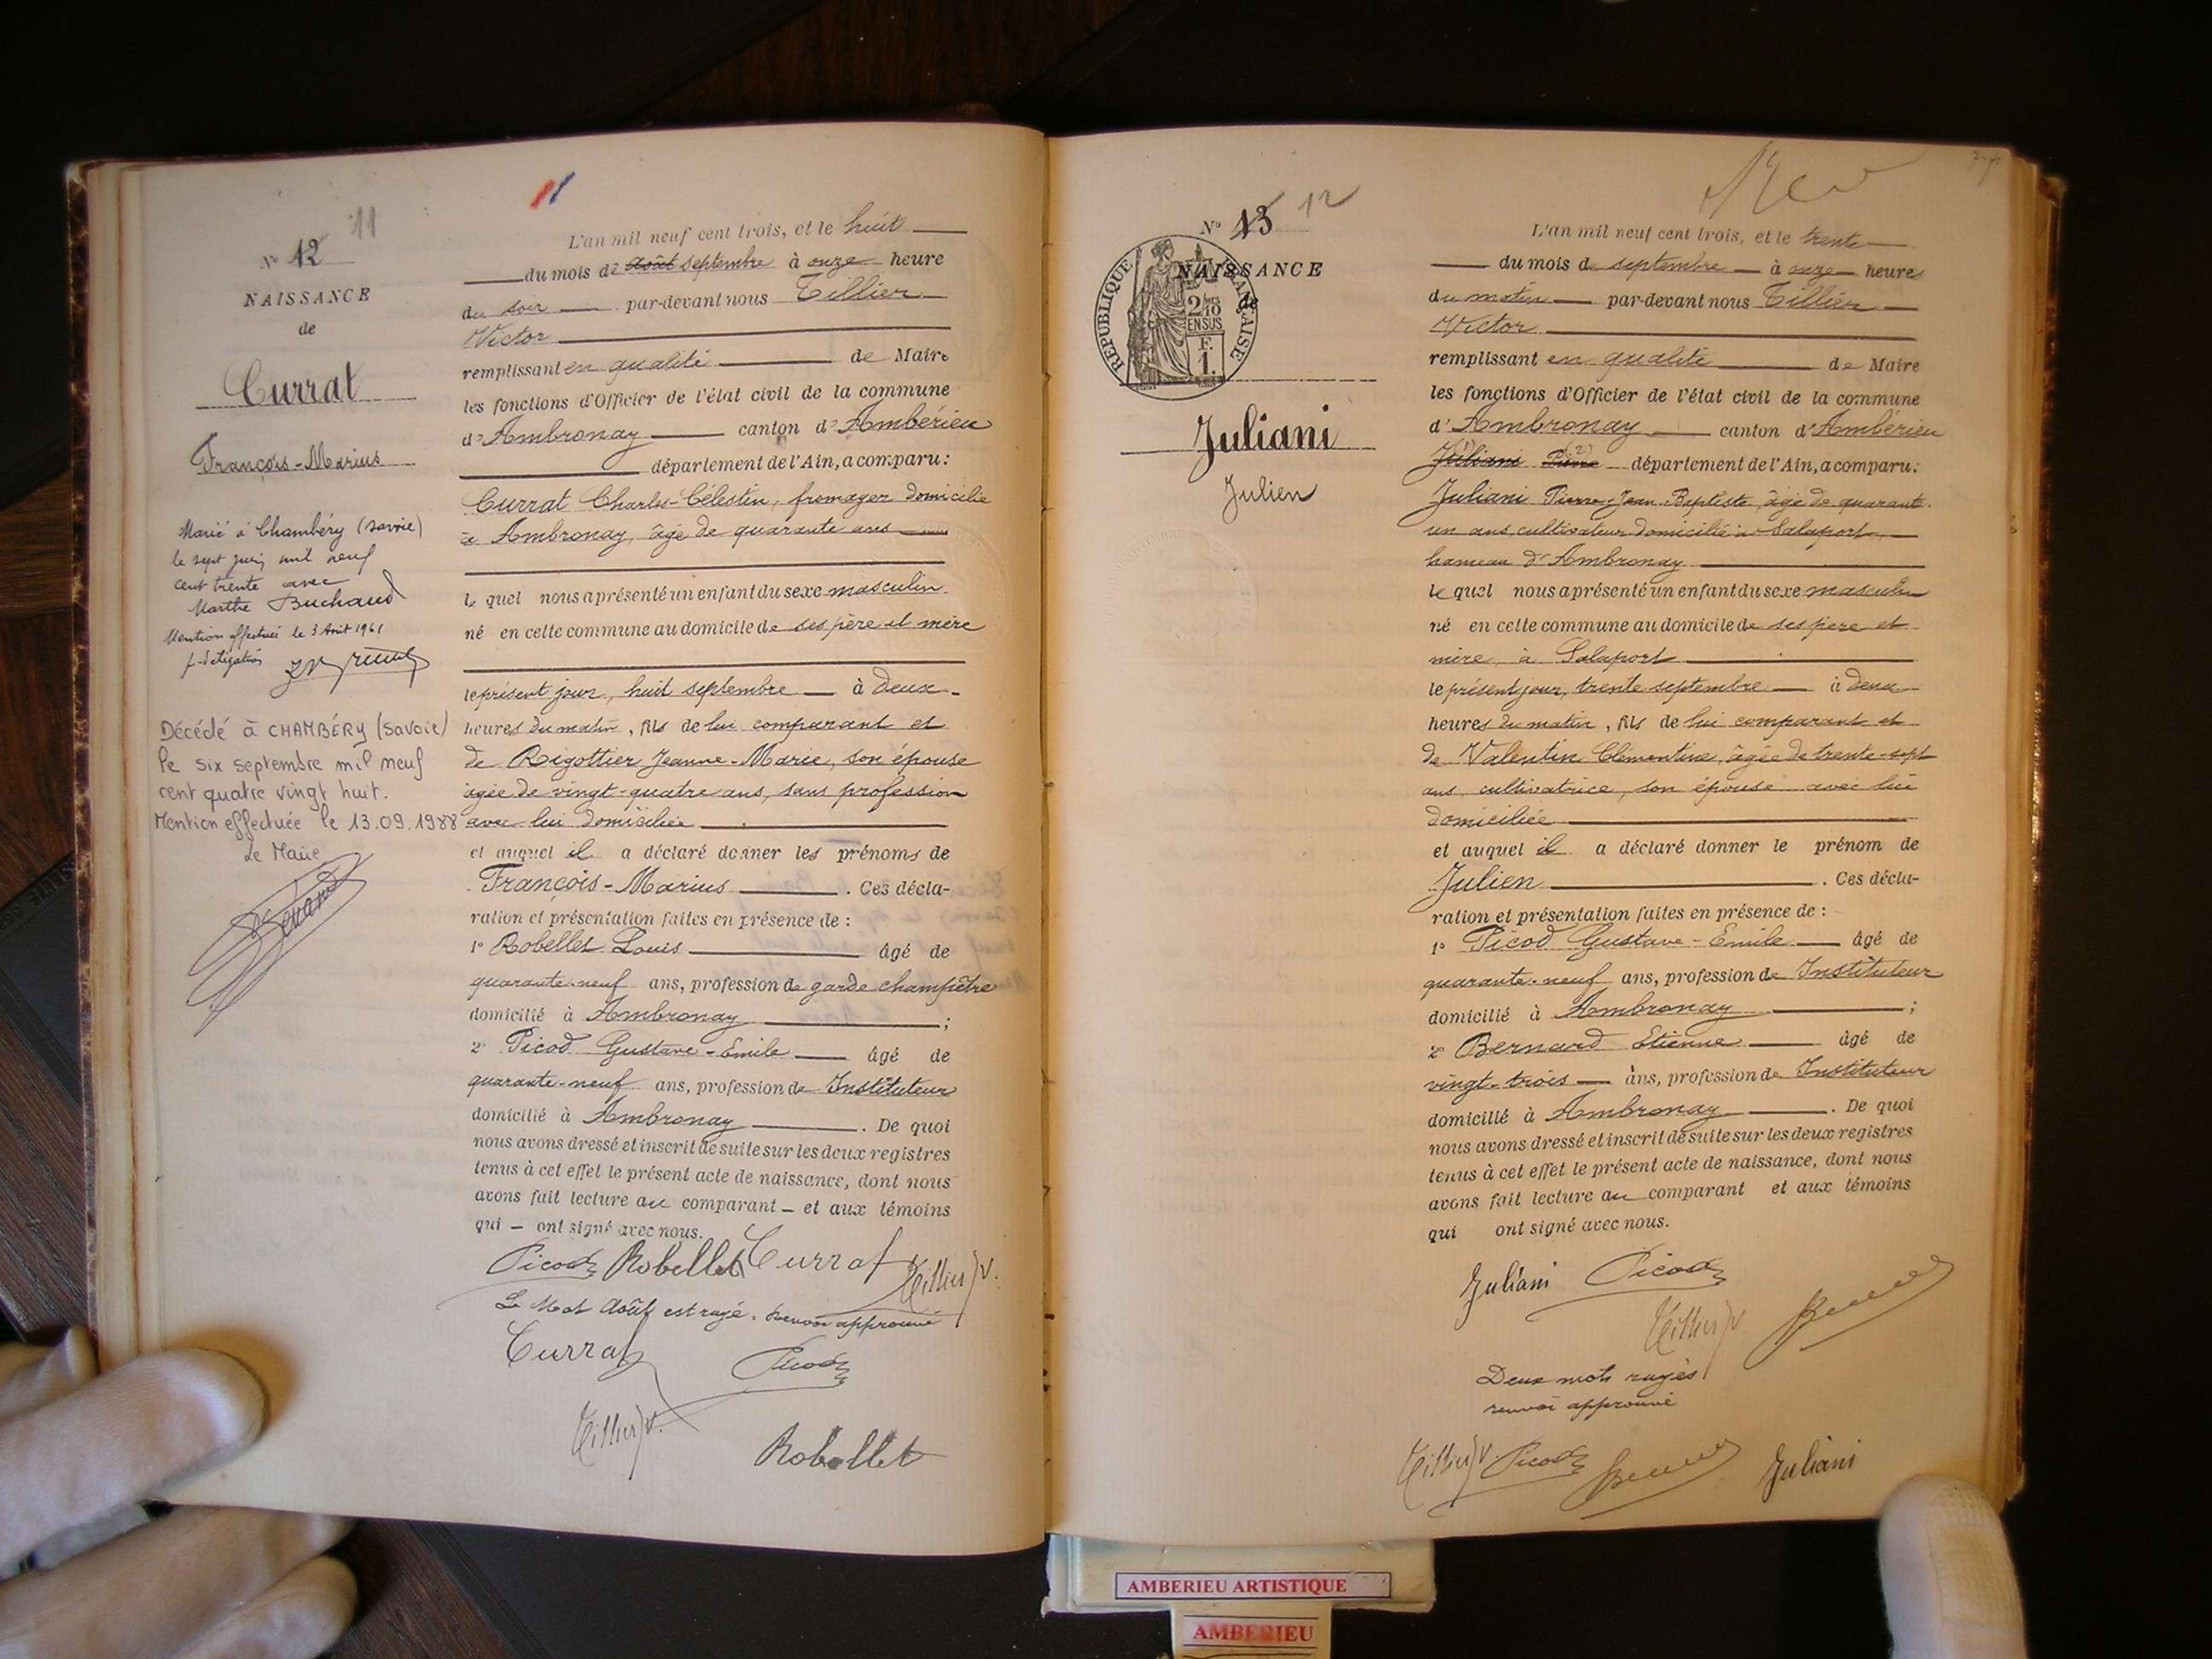 11
N° 12
NAISSANCE
de
Currat
François-Marius
Marié à Chambéry (Savoie)
le sept juin mil neuf
cent trente avec
Marthe Buchaud
Mention effectuée le 3 Août 1961
Décédé à CHAMBÉRY (Savoie)
le six septembre mil neuf
cent quatre vingt huit.
Mention effectuée le 13.09.1988
Le Maire
11
L'an mil neuf cent trois, et le huit
du mois de Août septembre à onze heure
du soir par-devant nous Tillier
Victor
remplissant en qualité de Maire
les fonctions d'Officier de l'état civil de la commune
d'Ambronay canton d'Ambérieu
département de l'Ain, a comparu :
Currat Charles-Célestin, fromager domicilié
à Ambronay, âgé de quarante ans
le quel nous a présenté un enfant du sexe masculin
né en cette commune au domicile de ses père et mère
le présent jour, huit septembre à deux
heures du matin, fils de lui comparant et
de Rigottier Jeanne-Marie, son épouse
âgée de vingt-quatre ans, sans profession
avec lui domiciliée
et auquel il a déclaré donner les prénoms de
François-Marius. Ces décla-
ration et présentation faites en présence de :
1° Robellet Louis âgé de
quarante-neuf ans, profession de garde champêtre
domicilié à Ambronay ;
2° Picod Gustave-Emile âgé de
quarante-neuf ans, profession de Instituteur
domicilié à Ambronay. De quoi
nous avons dressé et inscrit de suite sur les deux registres
tenus à cet effet le présent acte de naissance, dont nous
avons fait lecture au comparant et aux témoins
qui ont signé avec nous.
Picod Robellet Currat Tillier V.
Le Mot Août est rayé. Renvoi approuvé
Currat Picod
Tillier V.
Robellet
N° 13 12
NAISSANCE
de
REPUBLIQUE FRANÇAISE
2/10
EN SUS
F.
1.
Juliani
Julien
L'an mil neuf cent trois, et le trente
du mois de septembre à onze heures
du matin par-devant nous Tillier
Victor
remplissant en qualité de Maire
les fonctions d'Officier de l'état civil de la commune
d'Ambronay canton d'Ambérieu
Juliani Pierre département de l'Ain, a comparu :
Juliani Pierre-Jean-Baptiste, âgé de quarante-
un ans, cultivateur domicilié à Salaport,
hameau d'Ambronay
le quel nous a présenté un enfant du sexe masculin
né en cette commune au domicile de ses père et
mère à Salaport
le présent jour, trente septembre à deux
heures du matin, fils de lui comparant et
de Valentin Clémentine, âgée de trente-sept
ans, cultivatrice, son épouse avec lui
domiciliée
et auquel il a déclaré donner le prénom de
Julien. Ces décla-
ration et présentation faites en présence de :
1° Picod Gustave-Emile âgé de
quarante-neuf ans, profession de Instituteur
domicilié à Ambronay ;
2° Bernard Etienne âgé de
vingt-trois ans, profession de Instituteur
domicilié à Ambronay. De quoi
nous avons dressé et inscrit de suite sur les deux registres
tenus à cet effet le présent acte de naissance, dont nous
avons fait lecture au comparant et aux témoins
qui ont signé avec nous.
Juliani Picod
Tillier V.
Deux mots rayés
renvoi approuvé
Tillier V. Picod Juliani
AMBERIEU ARTISTIQUE
AMBERIEU